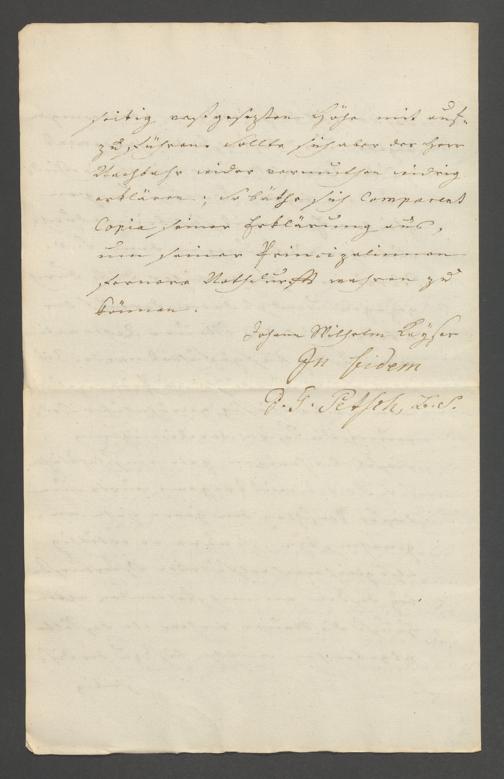 seitig vestgesetzten Höhe mit auf-
zu führen. Sollte sich aber der Herr
Nachbahr wider vermuthen widrig
erklären; so bäthe sich Comparent
Copia seiner Erklärung aus,
um seiner Principalinnen
fernere Nothdurfft wahren zu
können.
Johann Wilhelm Kayser
In fidem
P. F. Petsch, L. S.